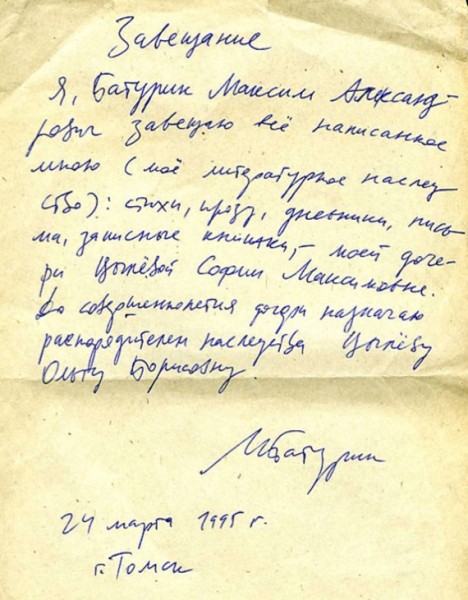 Завещание
Я, Батурин Максим Александ-
рович завещаю всё написанное
мною (моё литературное наслед-
ство): стихи, прозу, дневники, пись-
ма, записные книжки, – моей доче-
ри Цылёвой Софии Максимовне.
До совершеннолетия дочери назначаю
распорядителем наследства Цылёву
Ольгу Борисовну.
МБатурин
24 марта 1995 г.
г. Томск